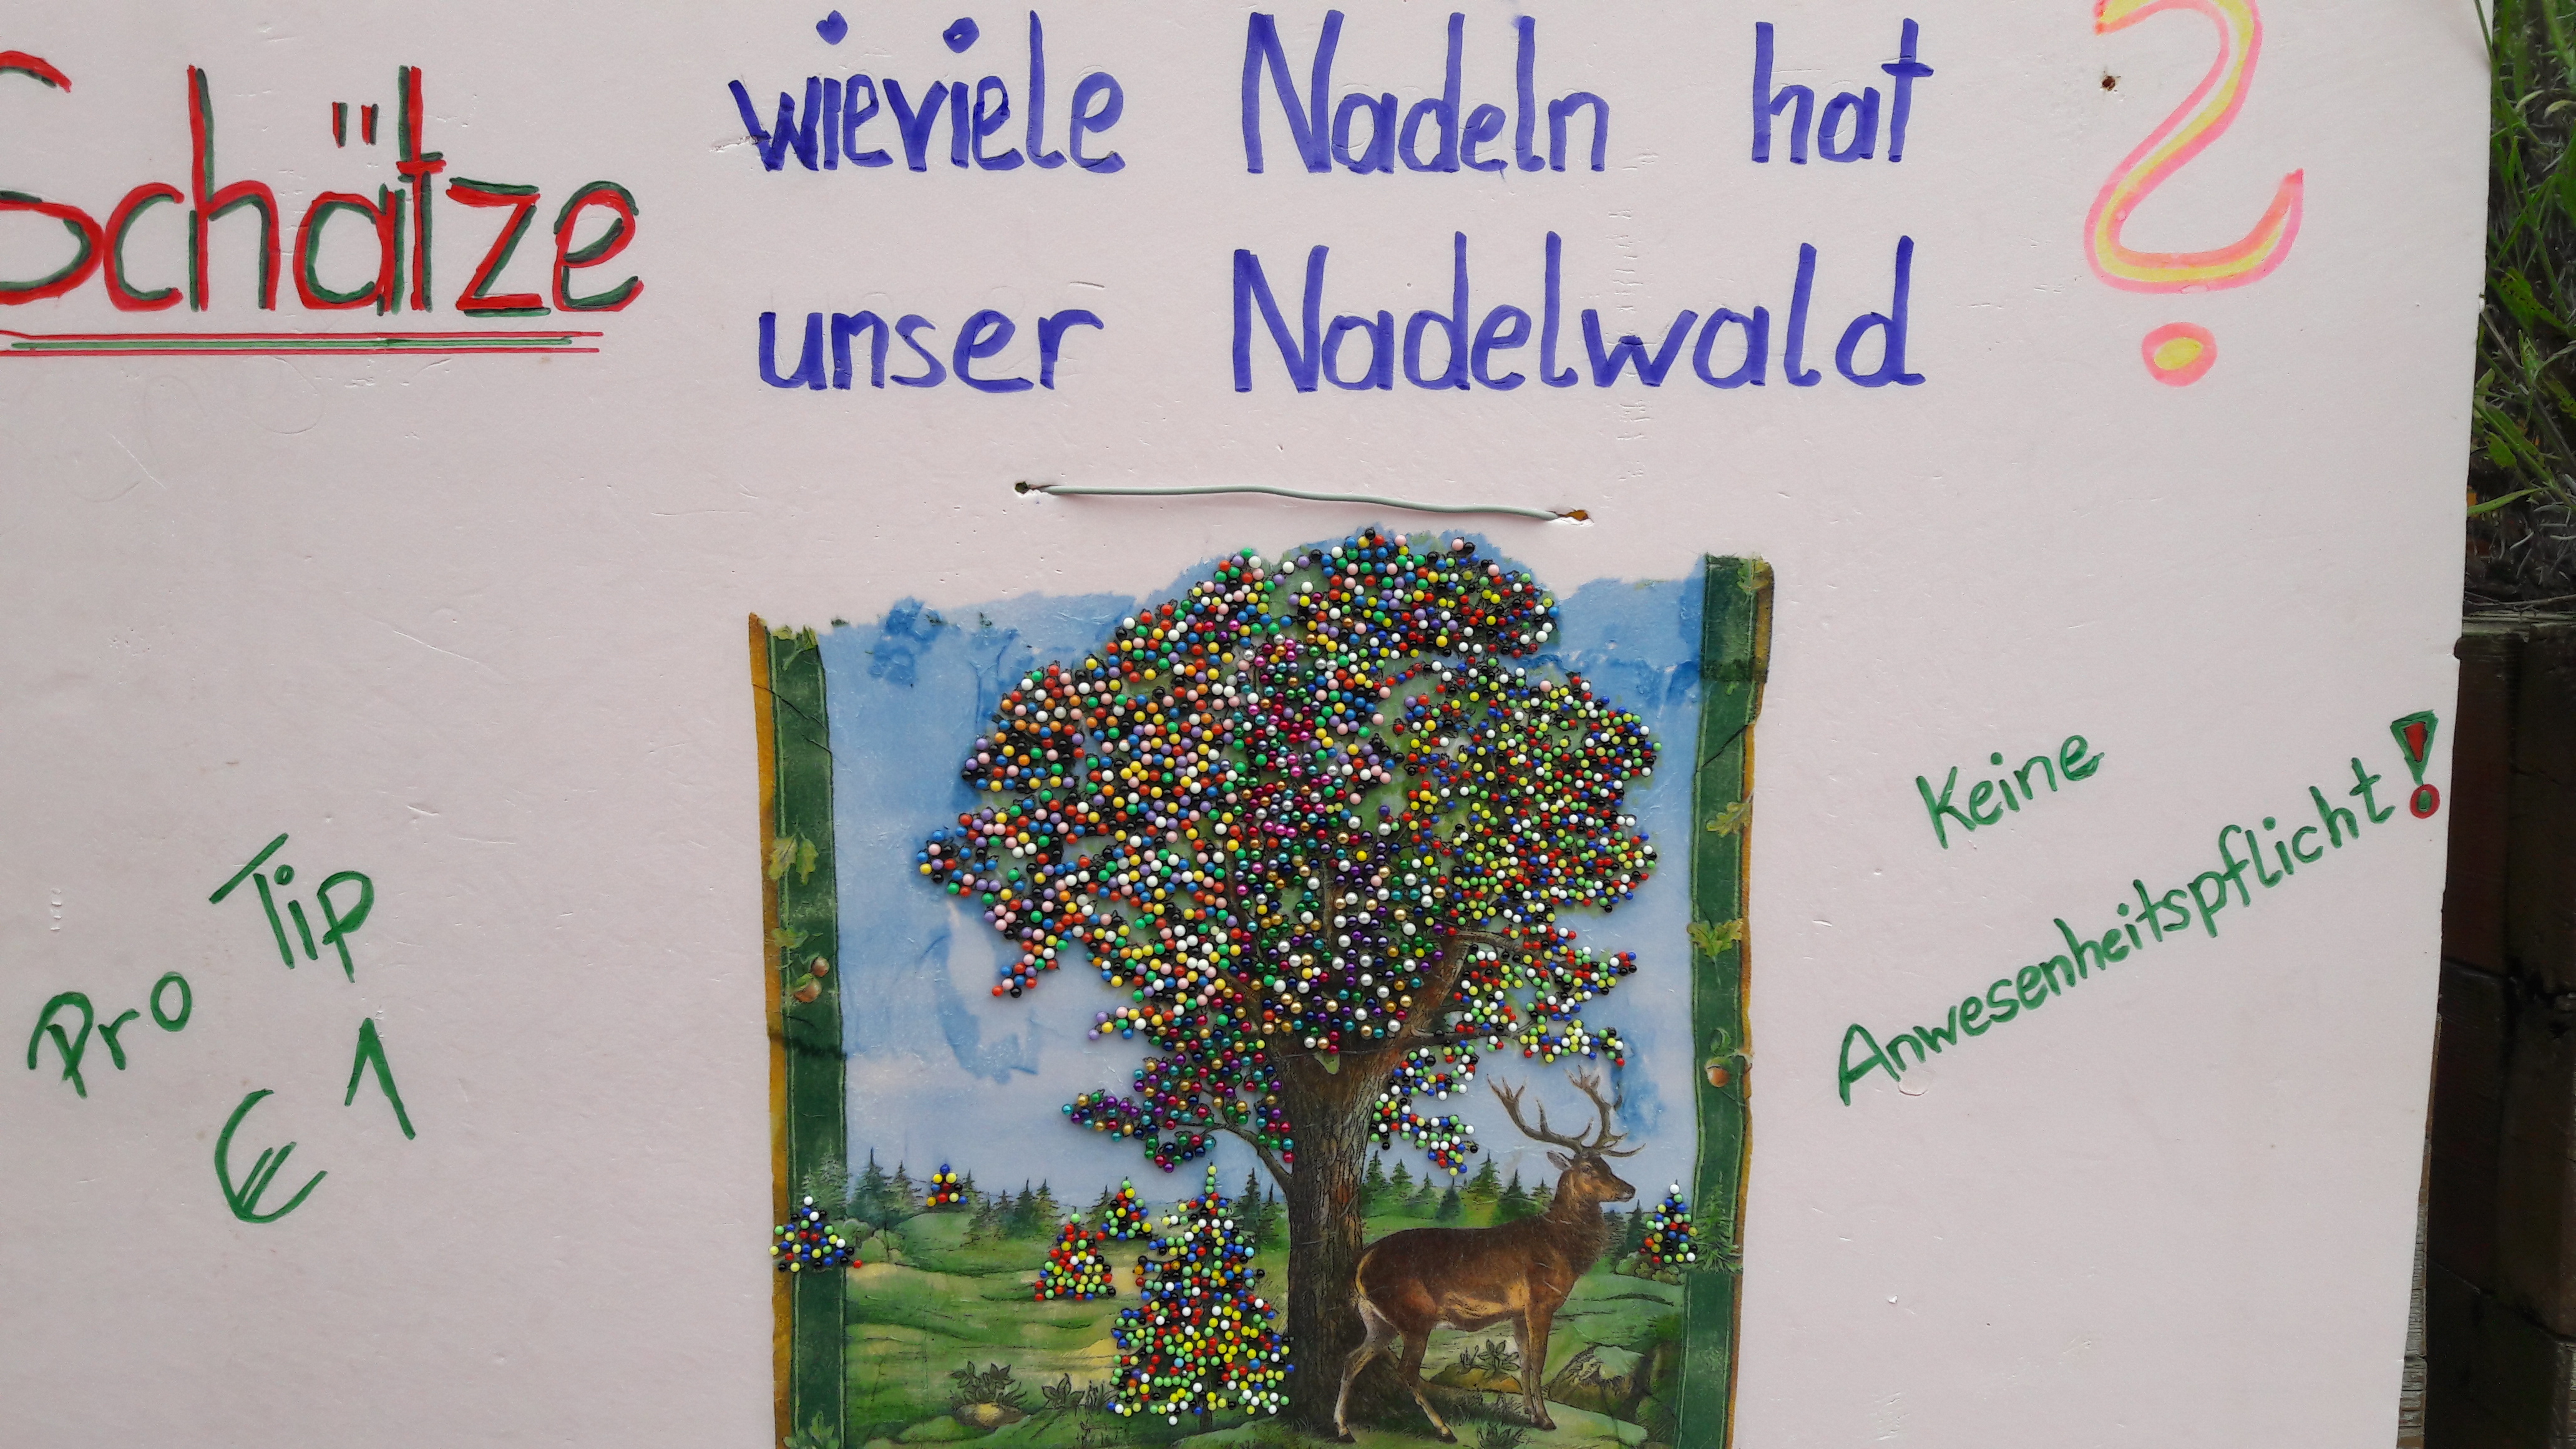 Schätze
wieviele Nadeln hat
unser Nadelwald ?
Pro Tip
€ 1
Keine
Anwesenheitspflicht!